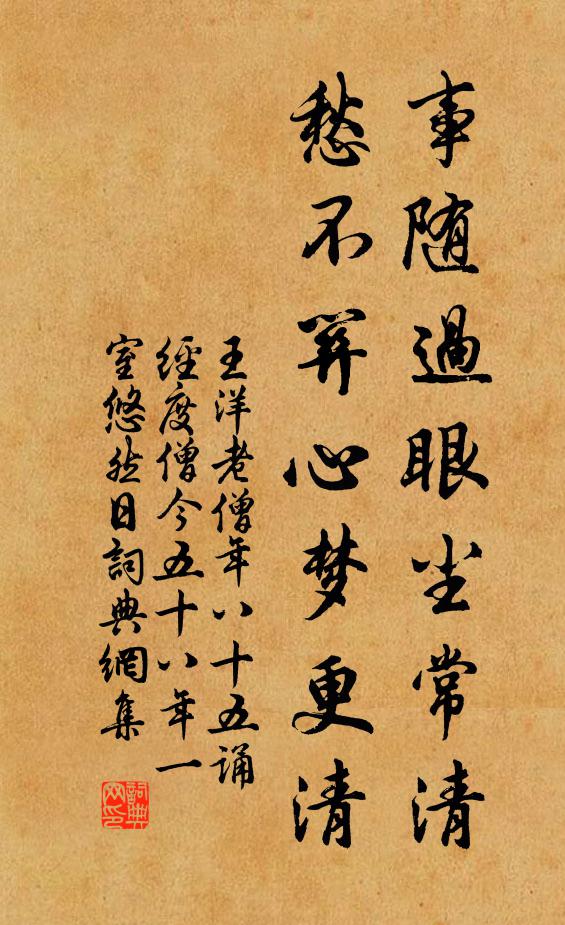 事随過眼尘常清
愁不関心梦更清
王洋老僧年八十五诵
經度僧今五十八年一
室悠然日詞典網集
詞典
网印